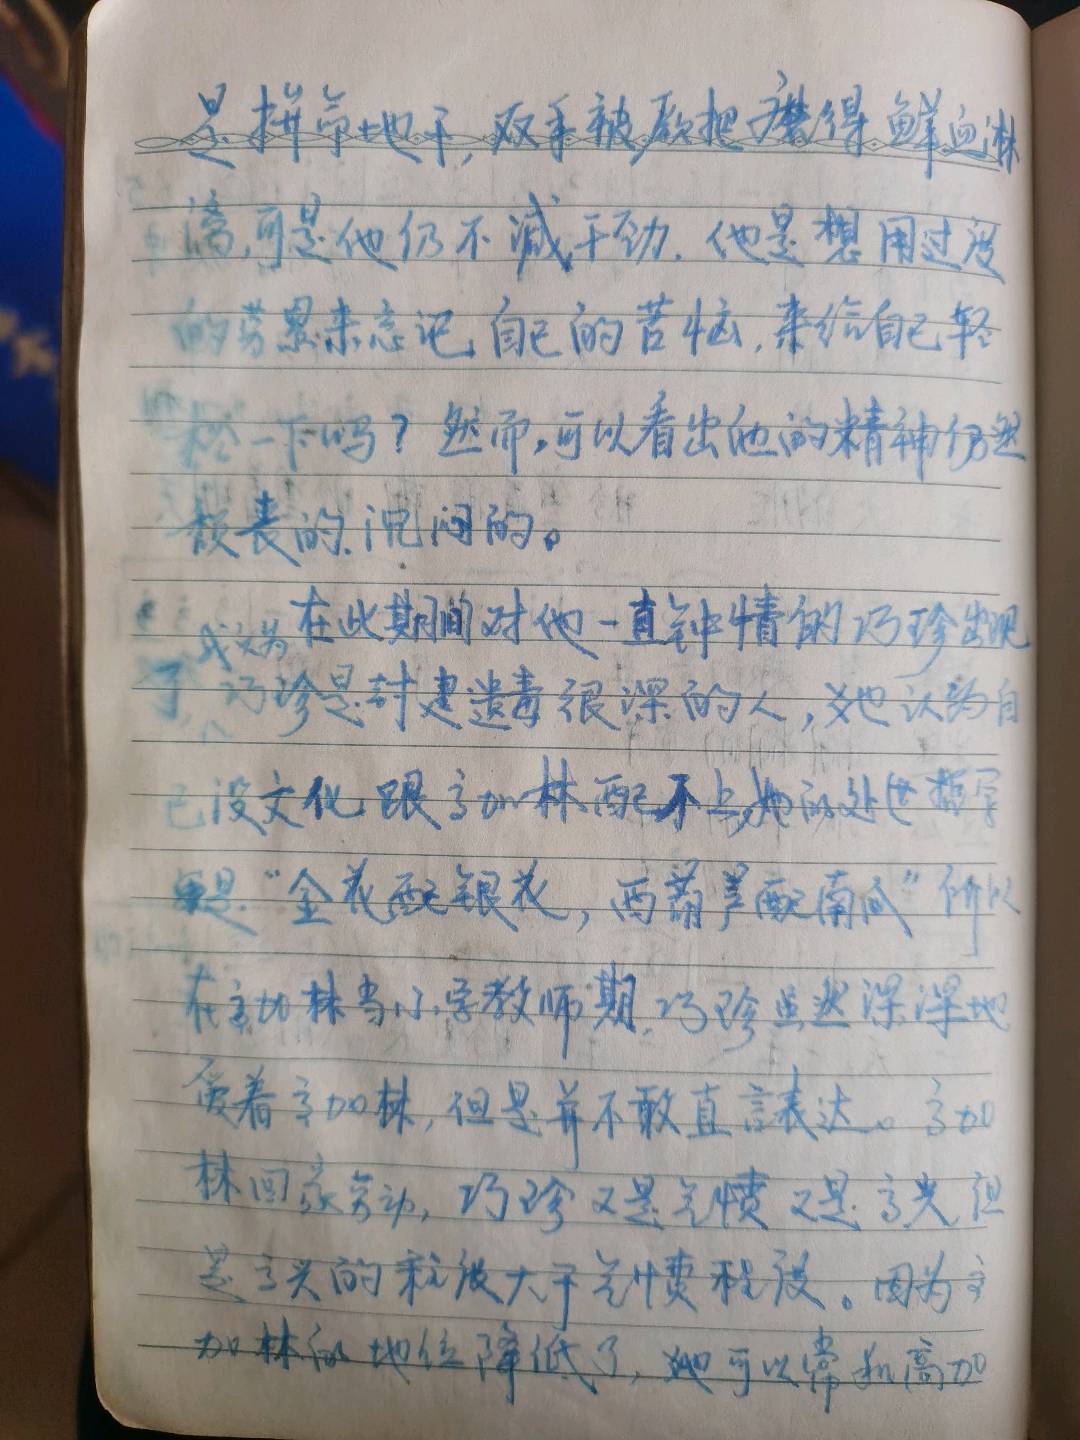 是拼命地干，双手被镢把磨得鲜血淋
漓，可是他仍不减干劲．他是想用过度
的劳累来忘记自己的苦恼，来给自己轻
松一下吗？然而，可以看出他的精神仍然
颓丧的、沉闷的。
在此期间对他一直钟情的巧珍出现
了，巧珍是封建遗毒很深的人，她认为自
己没文化跟高加林配不上，她的处世哲学
是“金花配银花，西葫芦配南瓜”所以
在高加林当小学教师期，巧珍虽然深深地
爱着高加林，但是并不敢直言表达。高加
林回家劳动，巧珍又是气愤又是高兴，但
是高兴的程度大于气愤程度。因为高
加林的地位降低了，她可以常和高加